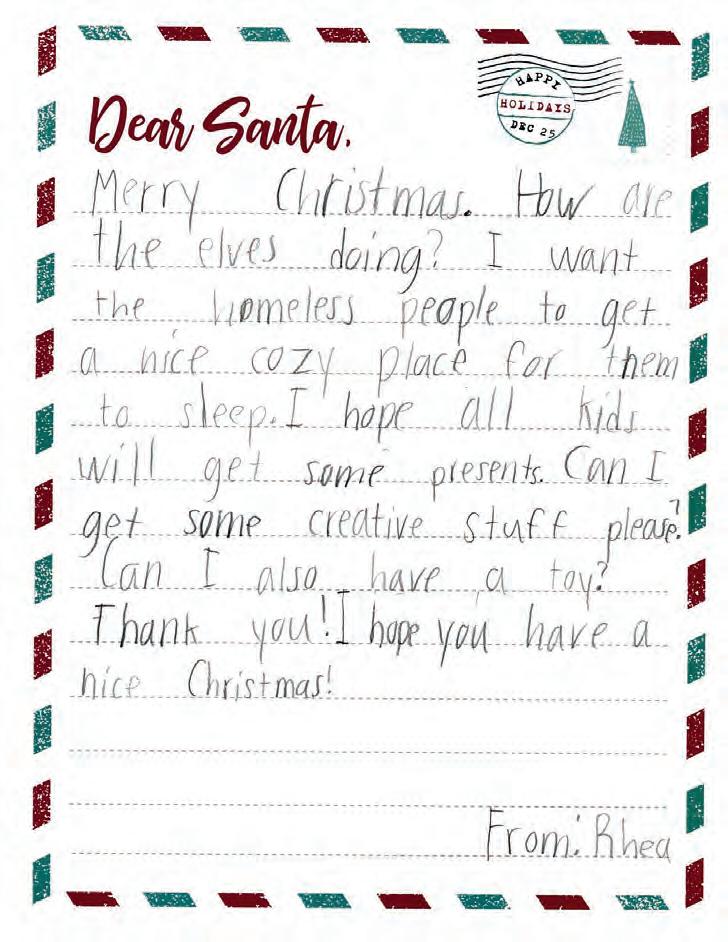 HAPPY
HOLIDAYS
DEC 25
Dear Santa,
Merry Christmas. How are
the elves doing? I want
the homeless people to get
a nice cozy place for them
to sleep. I hope all kids
will get some presents. Can I
get some creative stuff please?
Can I also have a toy?
Thank you! I hope you have a
nice Christmas!
From: Rhea